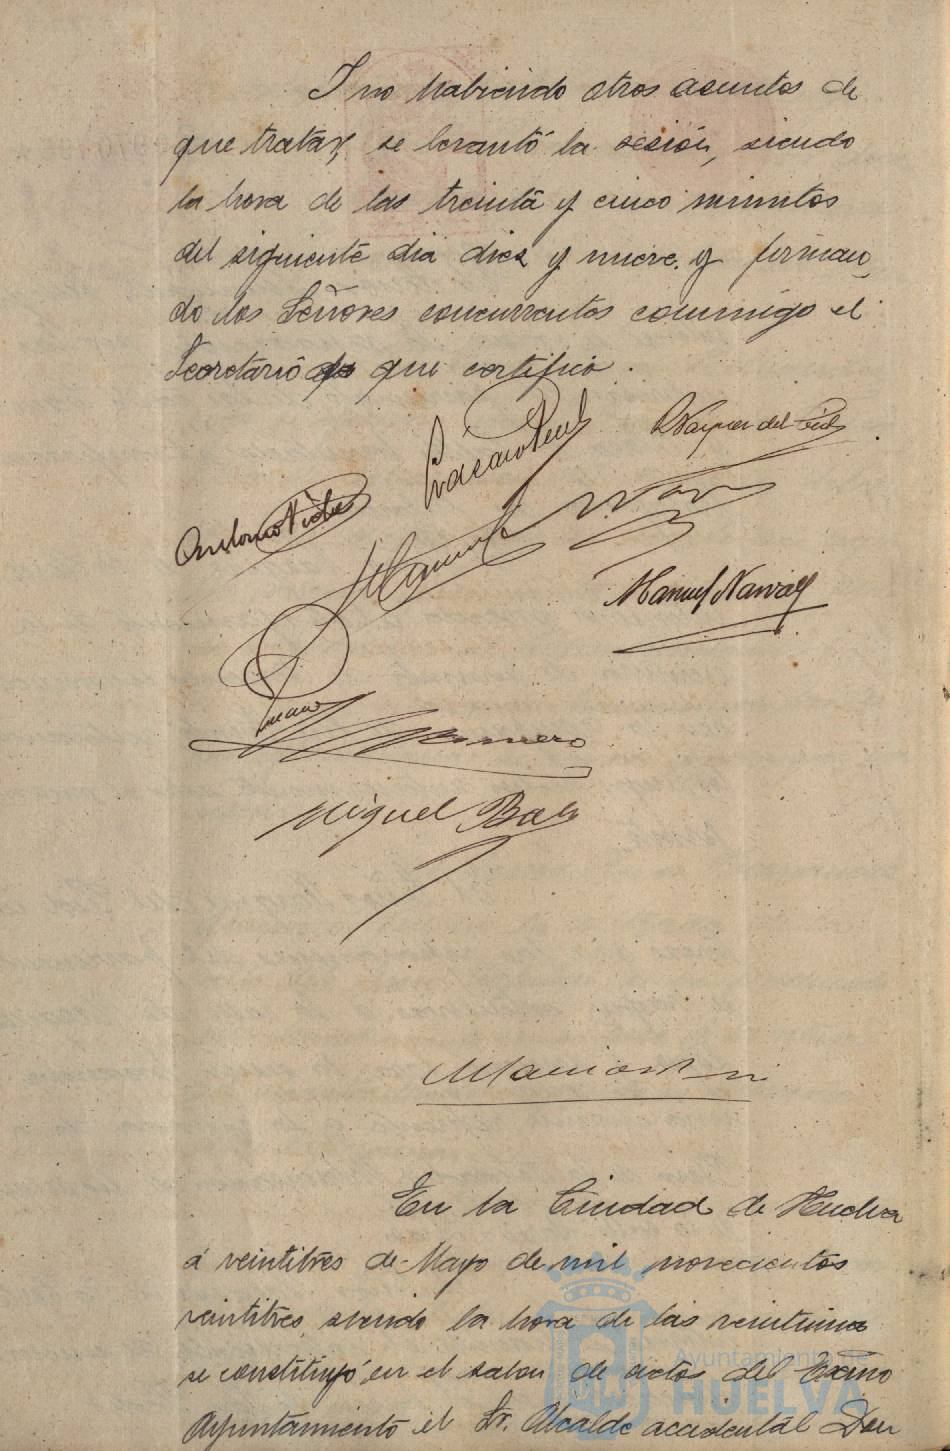 I no habiendo otros asuntos de
que tratar, se levantó la sesión, siendo
la hora de las treinta y cinco minutos
del siguiente dia diez y nueve. y firman-
do los Señores concurrentes conmigo el
Secretario de que certifico.
Antonio
Manuel Narváez
Romero
Miguel
En la Ciudad de Huelva
á veintitres de Mayo de mil novecientos
veintitres, siendo la hora de las veintiuna
se constituyó en el salon de actos del Excmo
Ayuntamiento el Sr. Alcalde accidental Don
Ayuntamiento de
HUELVA